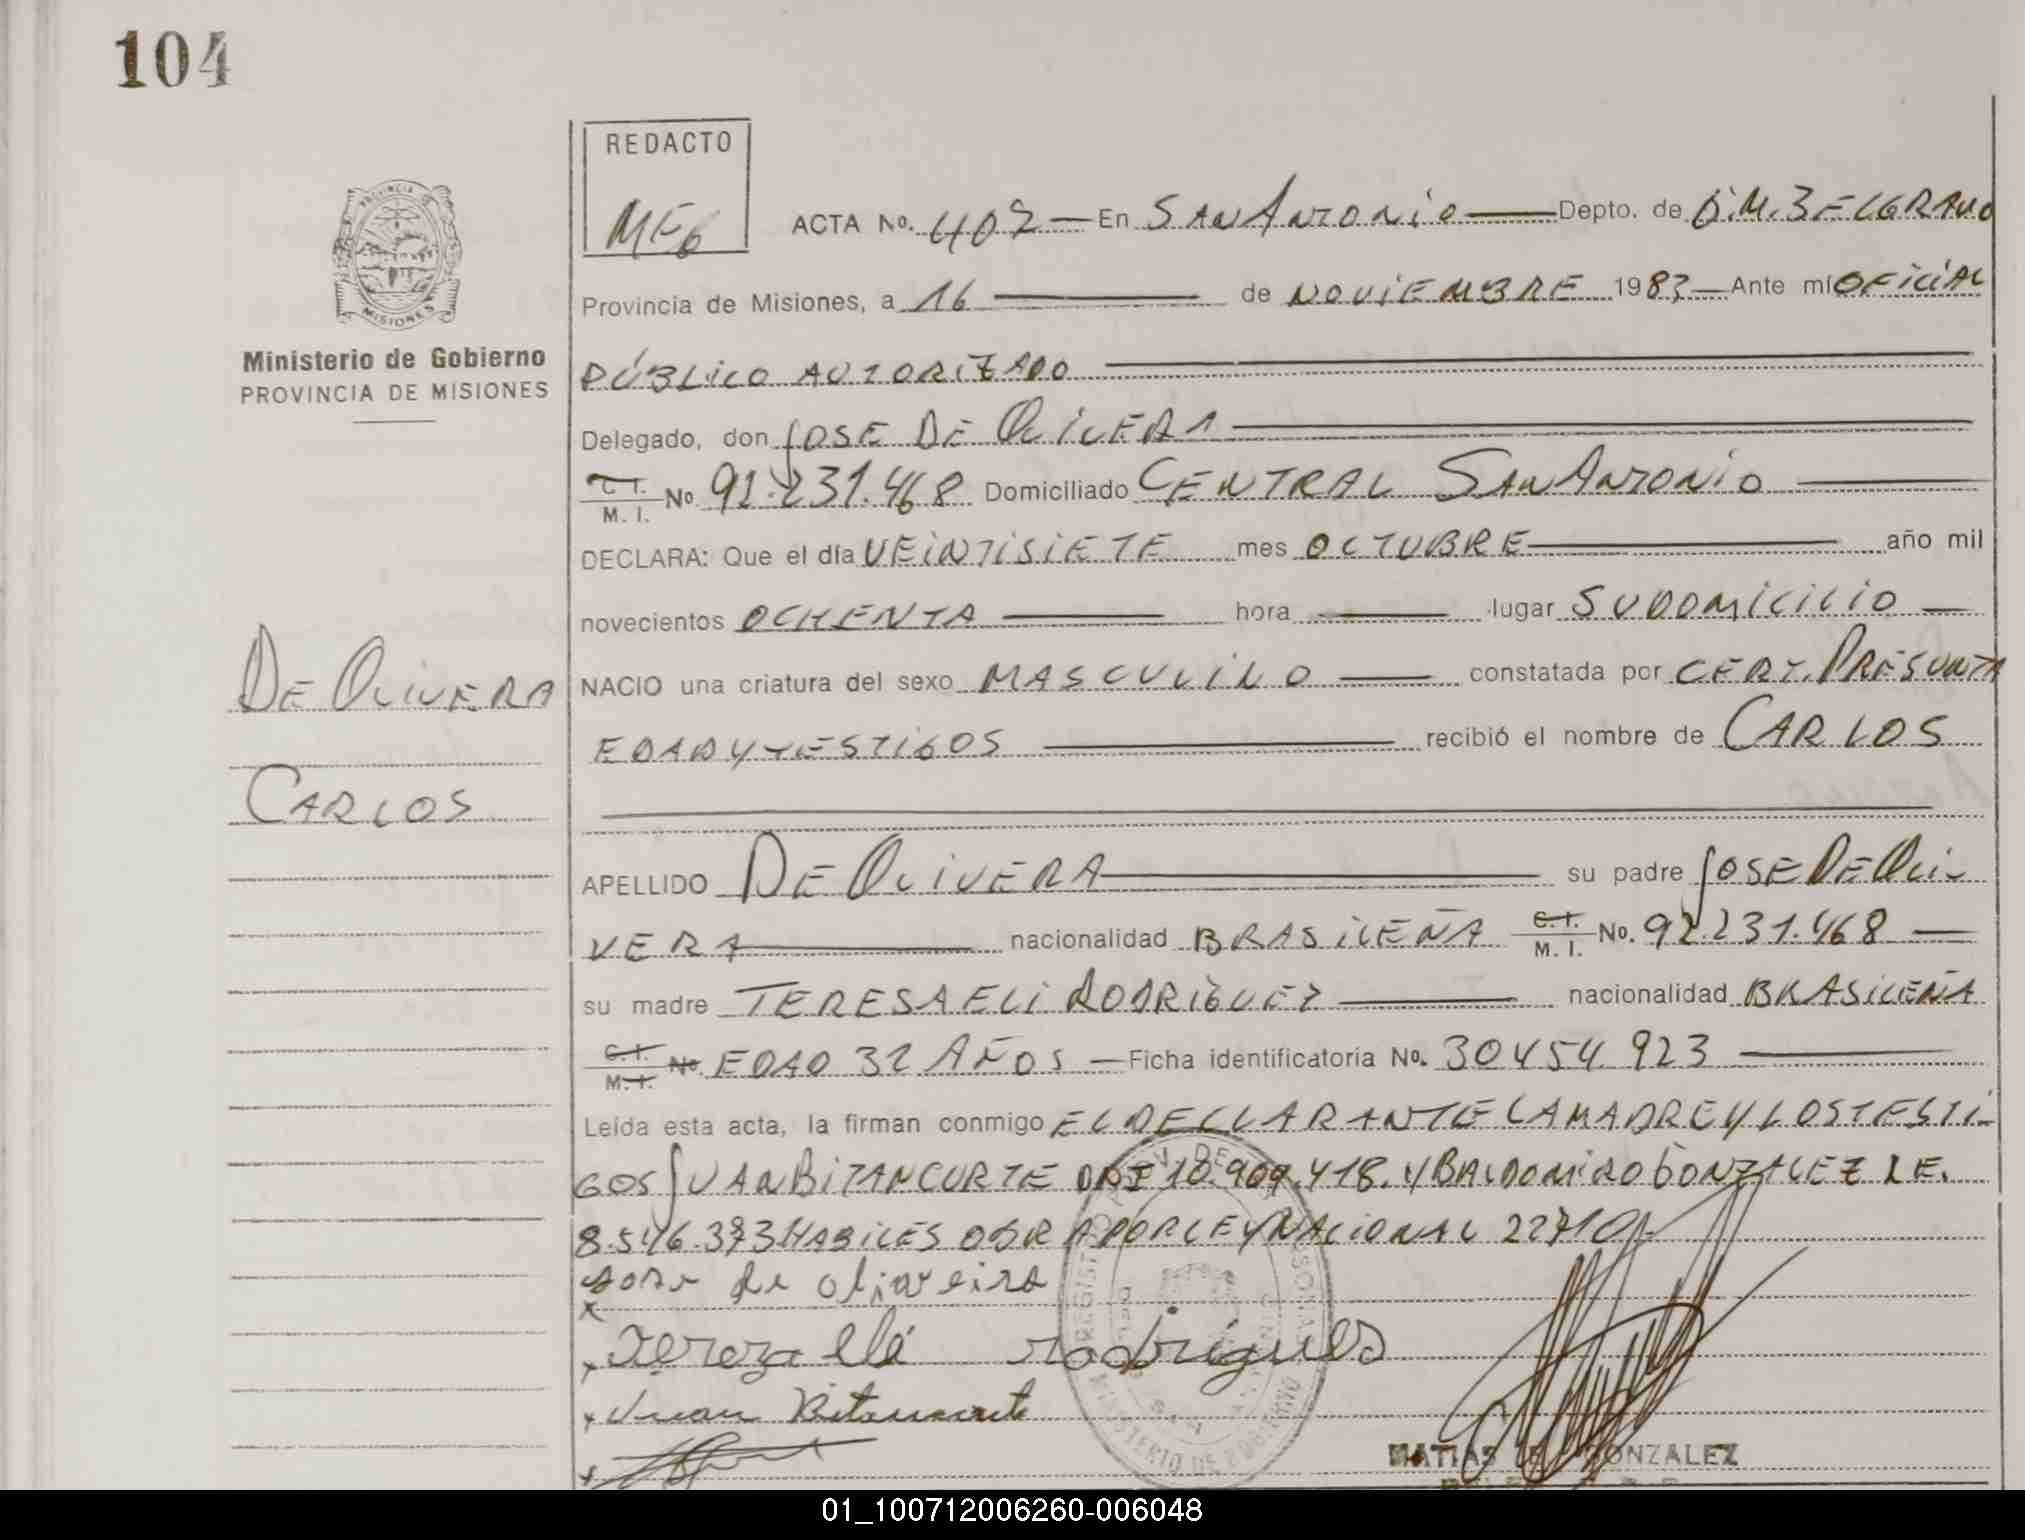 104
REDACTO
MEG
ACTA No. 407 En SAN ANTONIO Depto. de G.M. BELGRANO
PROVINCIA DE
MISIONES
Provincia de Misiones, a 16 de NOVIEMBRE 1983 Ante mí OFICIAL
Ministerio de Gobierno
PROVINCIA DE MISIONES
PÚBLICO AUTORIZADO
Delegado, don JOSE DE OLIVERA
C. I. M. I. No. 92.231.468 Domiciliado CENTRAL SAN ANTONIO
DECLARA: Que el día VEINTISIETE mes OCTUBRE año mil
novecientos OCHENTA hora lugar SU DOMICILIO
DE OLIVERA
NACIO una criatura del sexo MASCULINO constatada por CERT. PRESUNTA
EDAD Y TESTIGOS recibió el nombre de CARLOS
CARLOS
APELLIDO DE OLIVERA su padre JOSE DE OLI-
VERA nacionalidad BRASILEÑA C. I. M. I. No. 92.231.468
su madre TERESA ELI RODRIGUEZ nacionalidad BRASILEÑA
C. I. M. I. No. EDAD 32 AÑOS Ficha identificatoria No. 30454.923
Leída esta acta, la firman conmigo EL DECLARANTE LA MADRE Y LOS TESTI-
GOS JUAN BITANCURTE DNI 10.909.418. Y BALDOMIRO GONZALEZ L E.
8.546.373 HABILES OBRA POR LEY NACIONAL 22710
Jose de oliveira
x Tereza Elí rodrigues
x Juan Bitancurte
MATIAS GONZALEZ
01_100712006260-006048